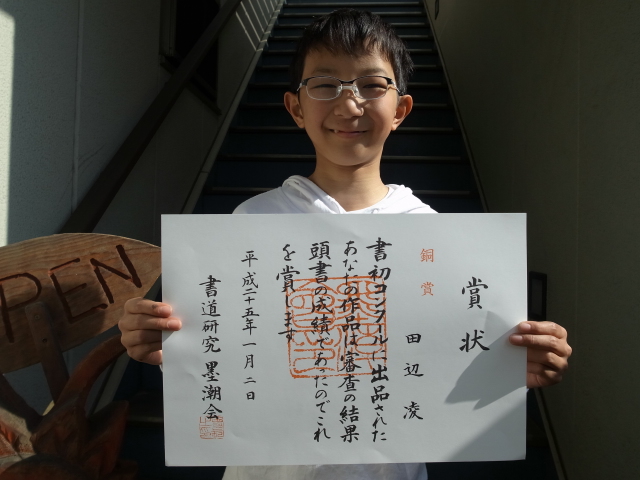 賞状
銅賞
田辺凌
書初コンクールに出品された
あなたの作品は審査の結果
頭書の成績であったのでこれ
を賞します
平成二十五年一月二日
書道研究 墨潮会
PEN